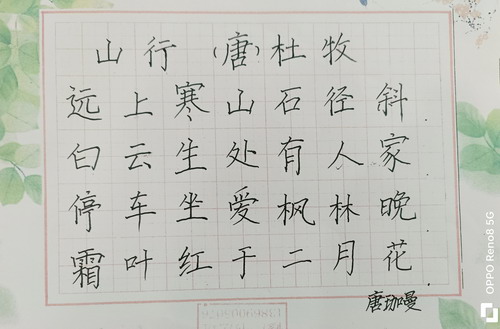 山行 (唐) 杜牧
远上寒山石径斜
白云生处有人家
停车坐爱枫林晚
霜叶红于二月花
唐珈曼
OPPO Reno8 5G